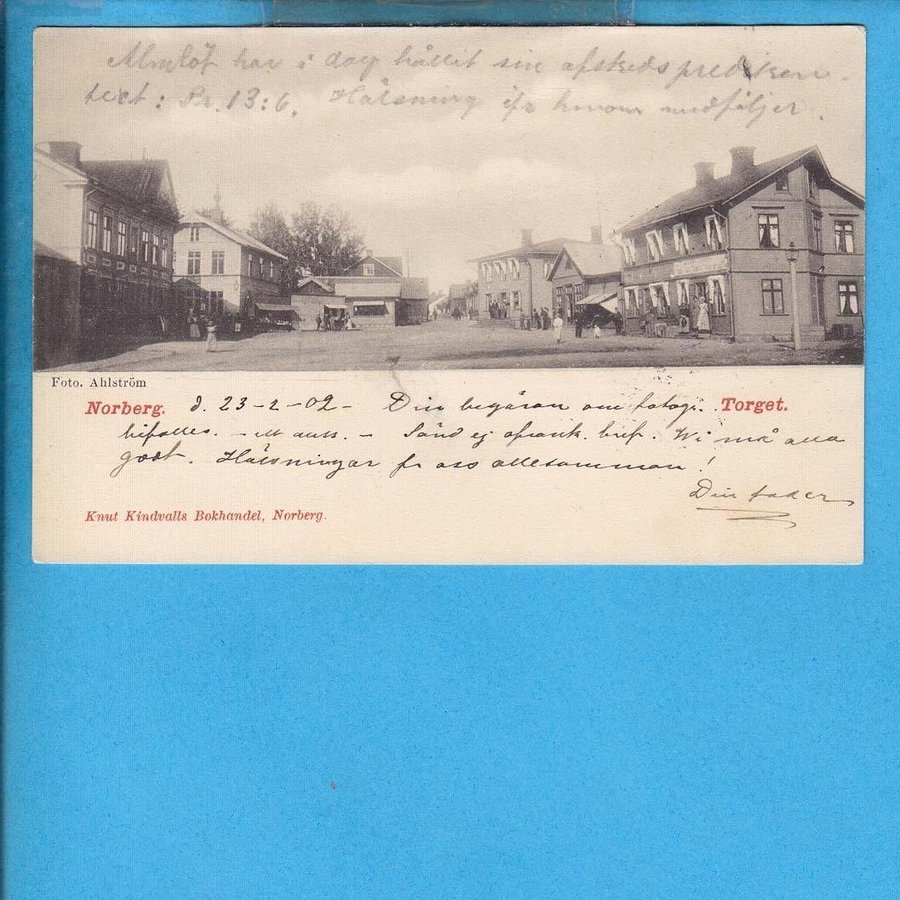 Almlöf har i dag hållit sin afskedspredikan.
text: 13:6. Hälsning ifr honom medföljer.
Foto. Ahlström
Norberg. d. 23-2-02- Din begäran om fotogr. Torget.
bifalles. - Sänd ej ofrank. bref. Wi må alla
godt. Hälsningar fr oss allesamman!
Din fader
Knut Kindvalls Bokhandel, Norberg.